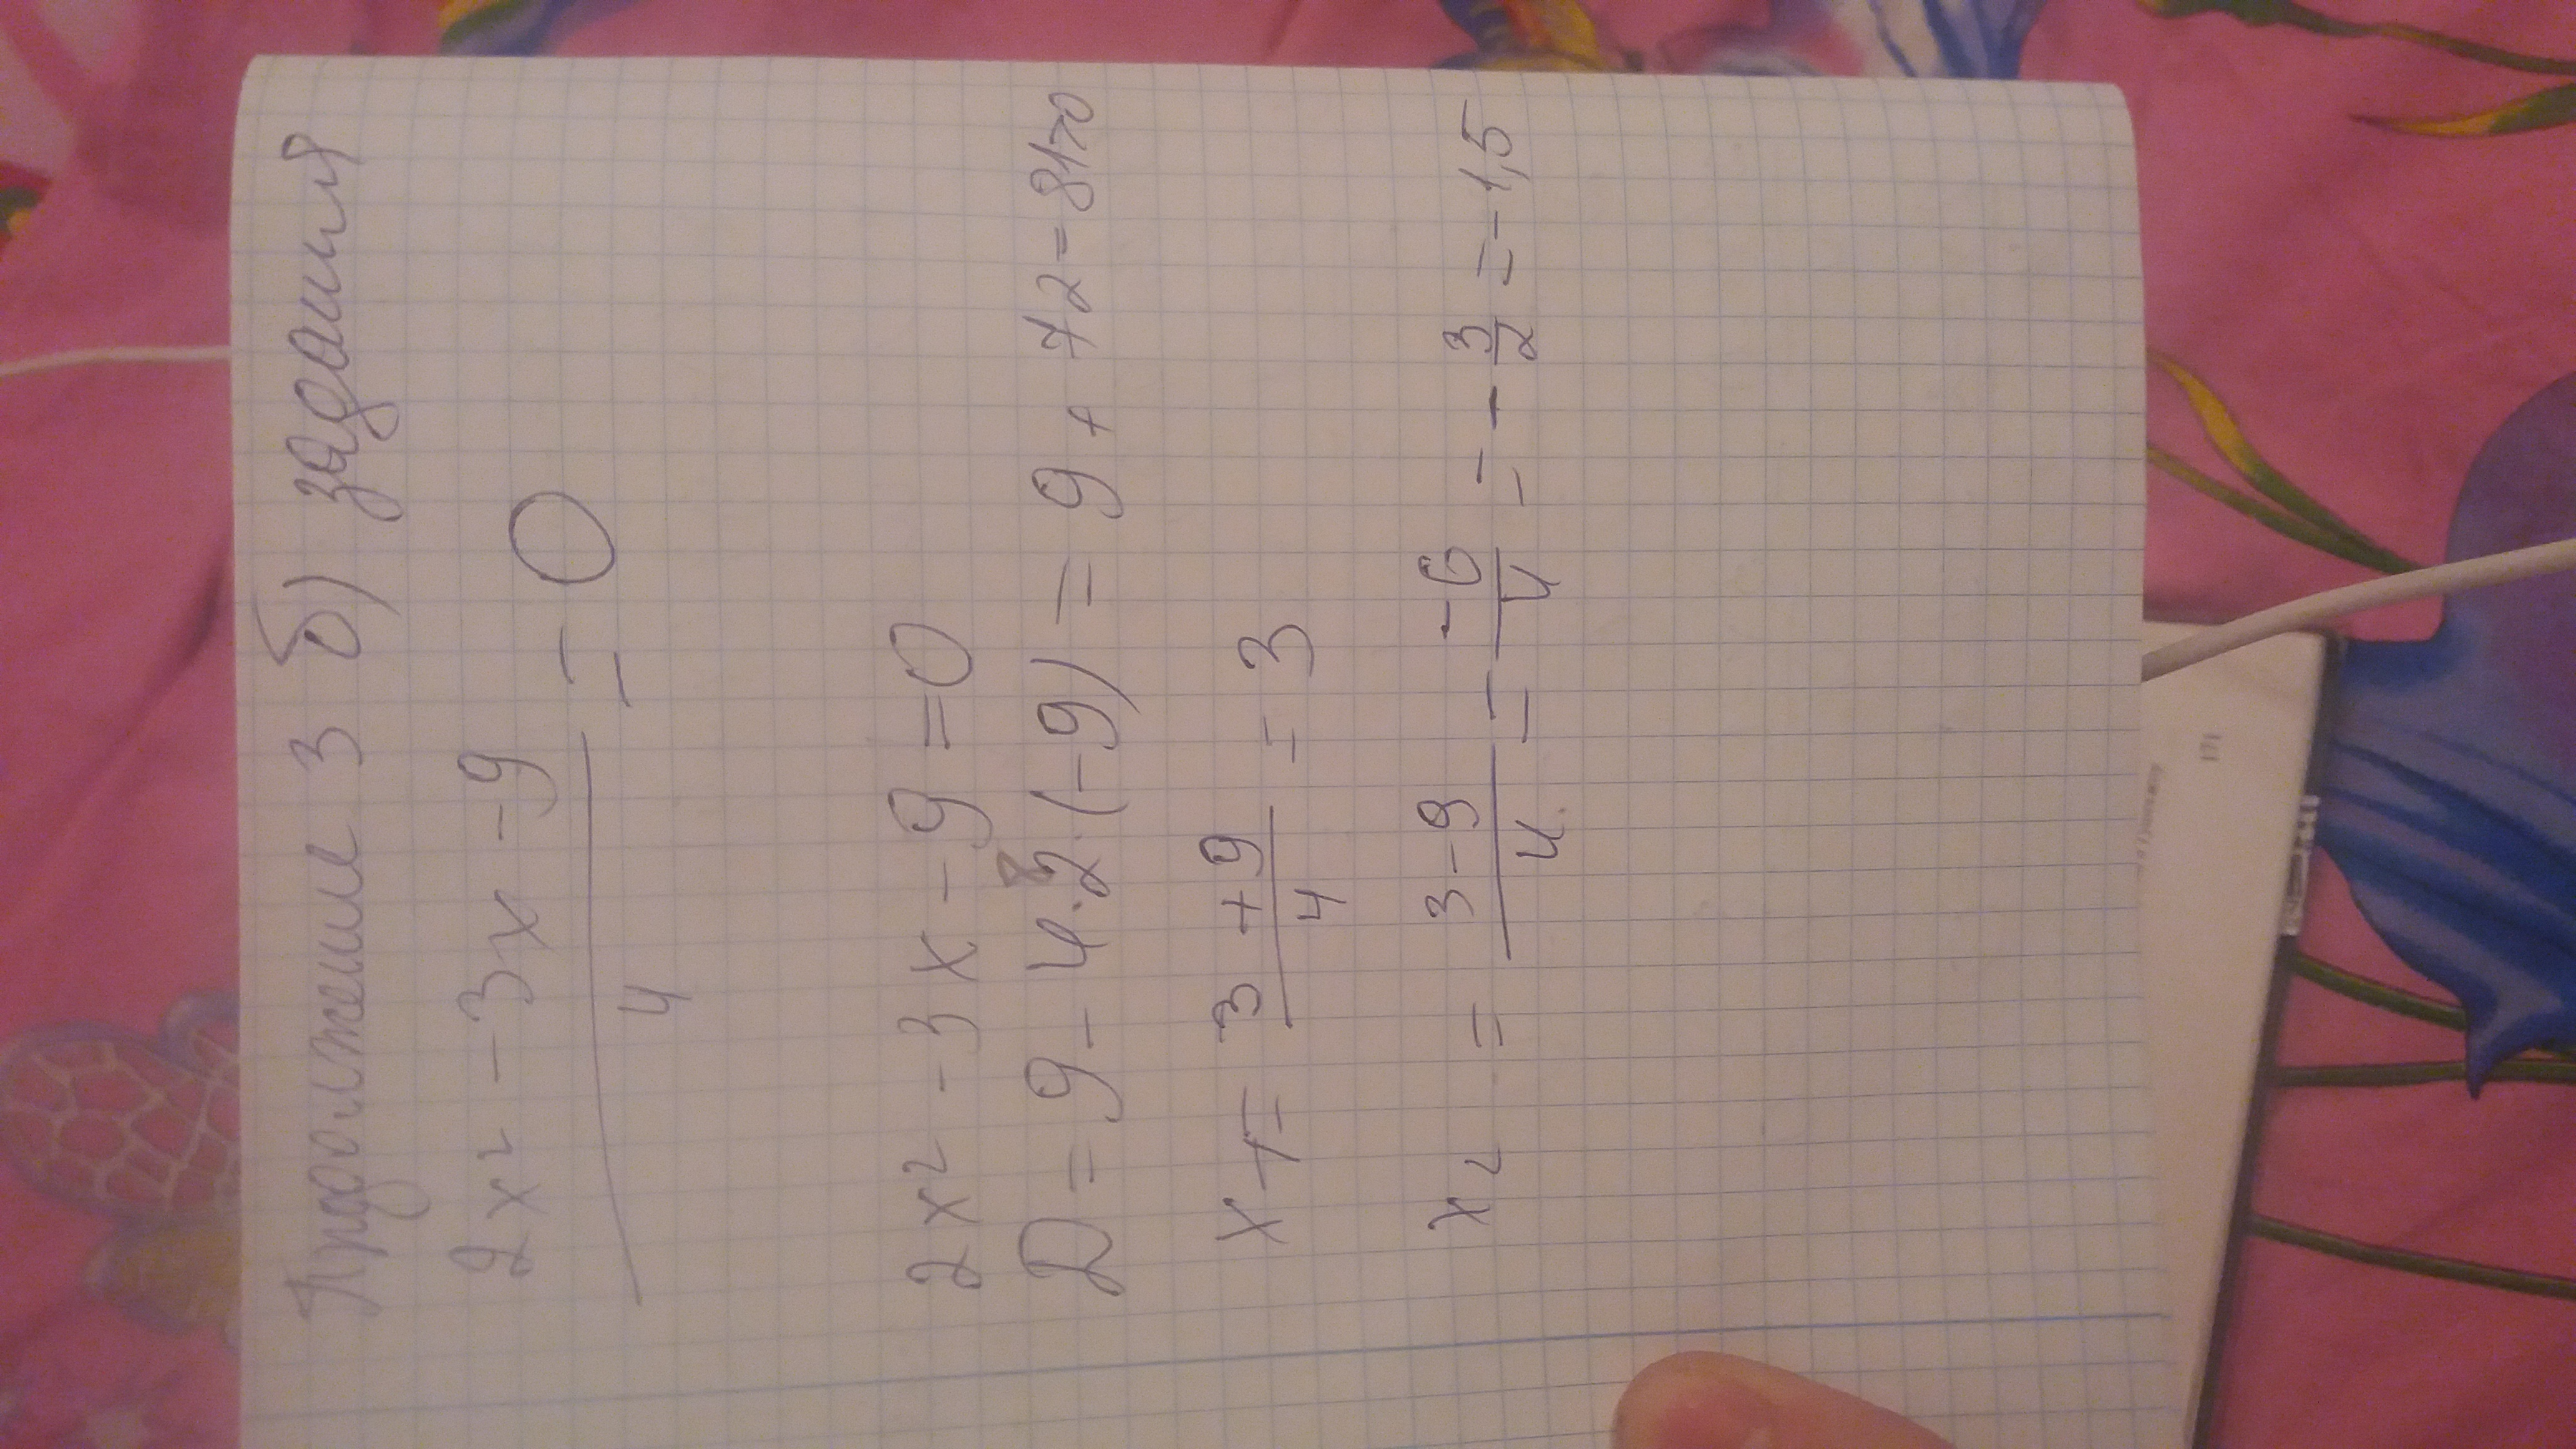 Продолжение 3 б) задания
2x² - 3x - 9
4
= 0
2x² - 3x - 9 = 0
8
D = 9 - 4 · 2 · (-9) = 9 + 72 = 81>0
x₁ = 3 + 9 / 4 = 3
x₂ = 3 - 9 / 4 = -6 / 4 = - 3 / 2 = -1,5
171